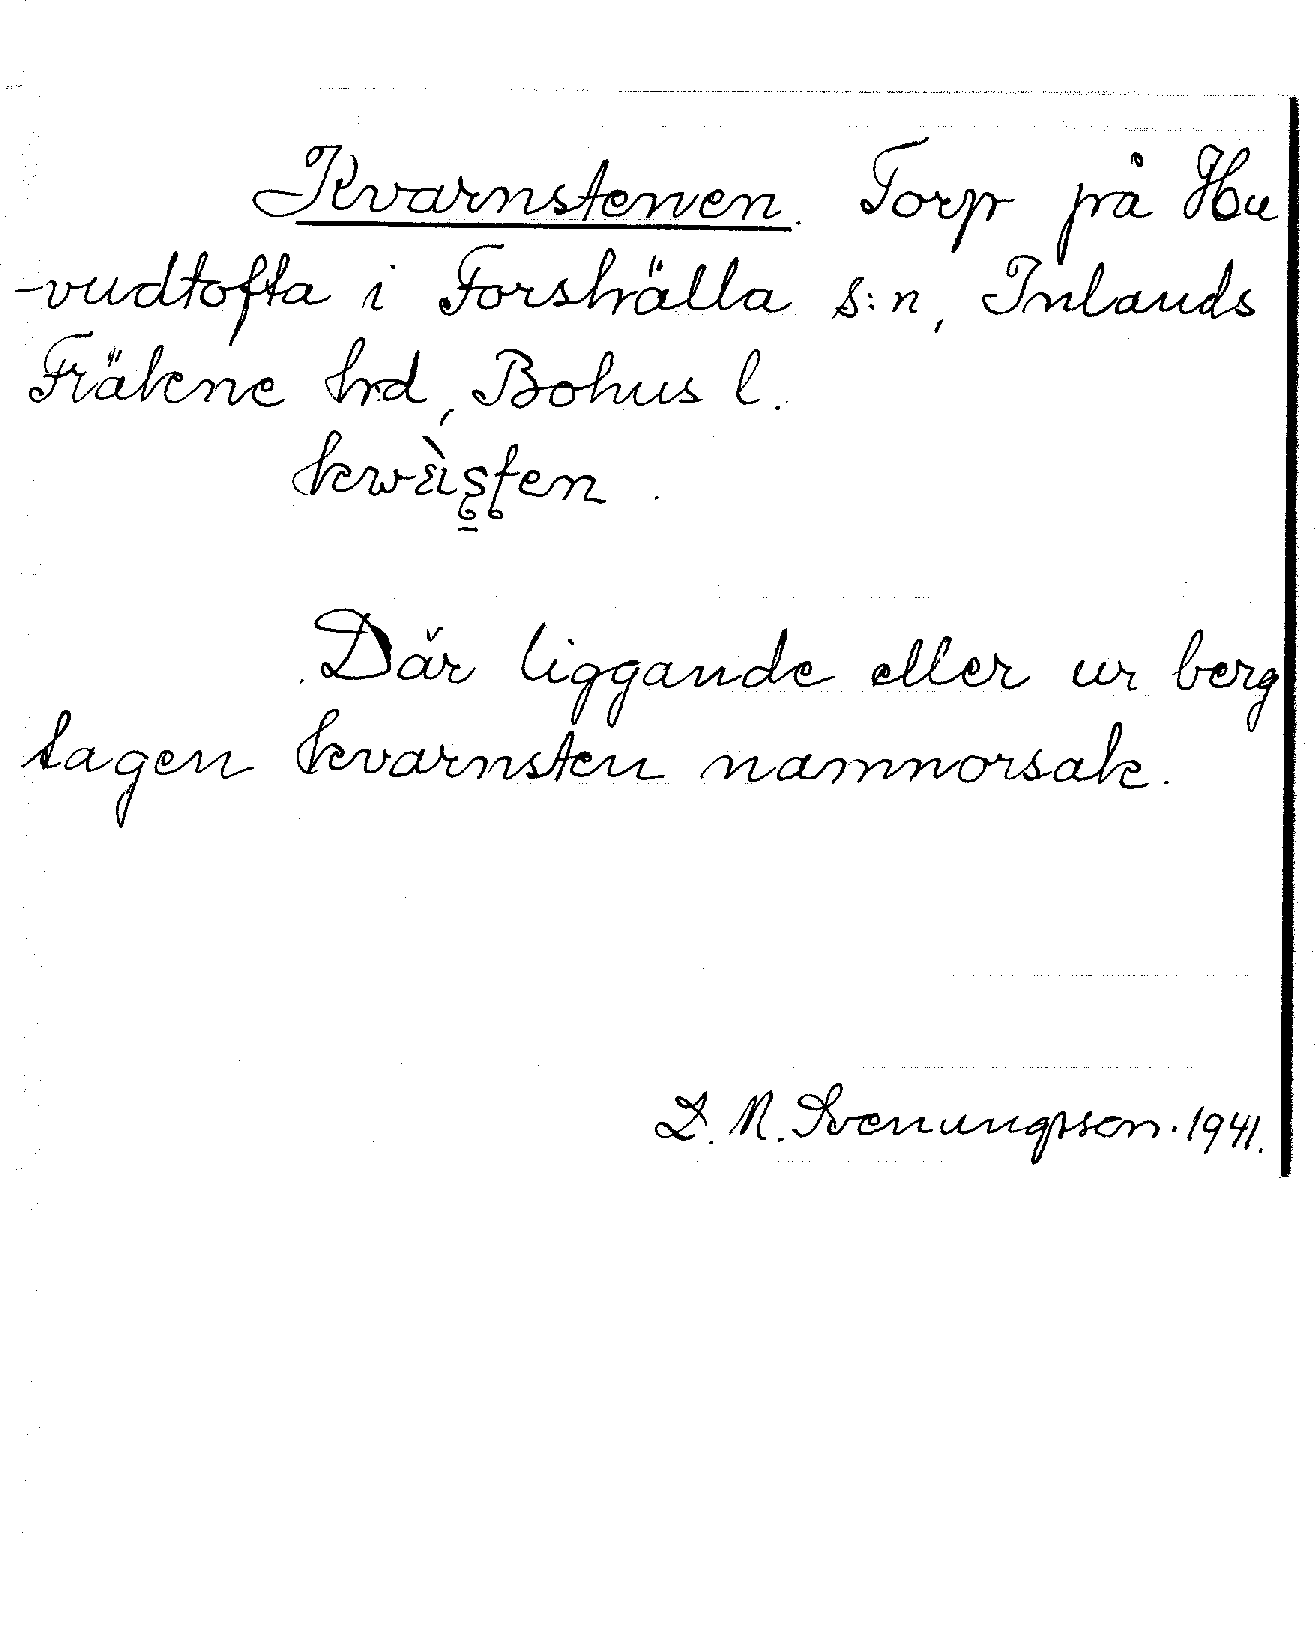 Kvarnstenen. Torp på Hu
-vudtofta i Forshälla s:n, Inlands
Fräkne hrd, Bohus l.
Där liggande eller ur berg
tagen kvarnsten namnorsak.
D. N. Svenungsson. 1941.